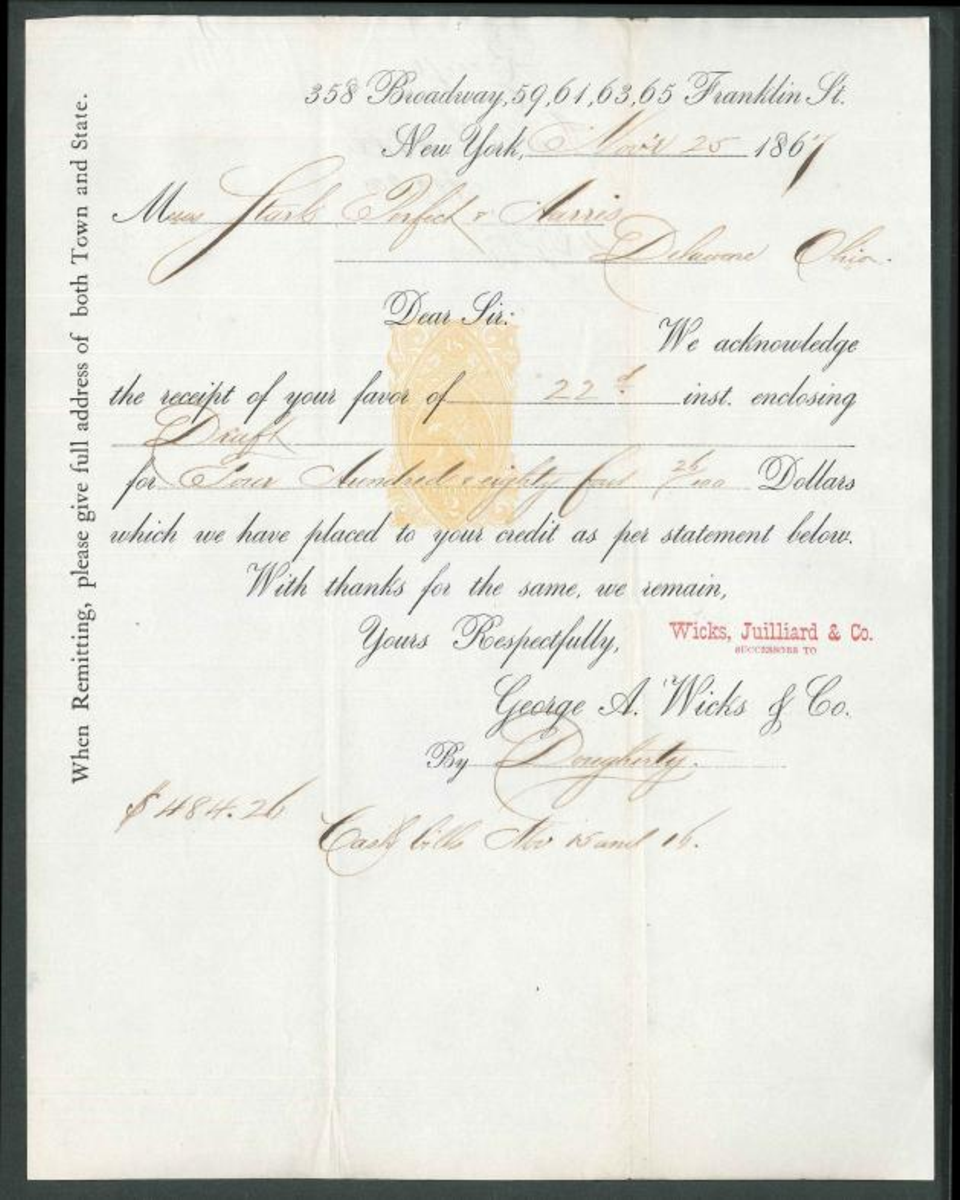 358 Broadway, 59, 61, 63, 65 Franklin St.
New York, Nov 25 1867
Mess Stark Perfect & Harris
Delaware Ohio.
Dear Sir:
We acknowledge
the receipt of your favor of 22d inst. enclosing
Draft
for Four Hundred & eighty four 26/100 Dollars
which we have placed to your credit as per statement below.
With thanks for the same, we remain,
Yours Respectfully,
Wicks, Juilliard & Co.
SUCCESSORS TO
George A. Wicks & Co.
By Dougherty.
$484.26
Cash bills Nov 15 and 16.
When Remitting, please give full address of both Town and State.